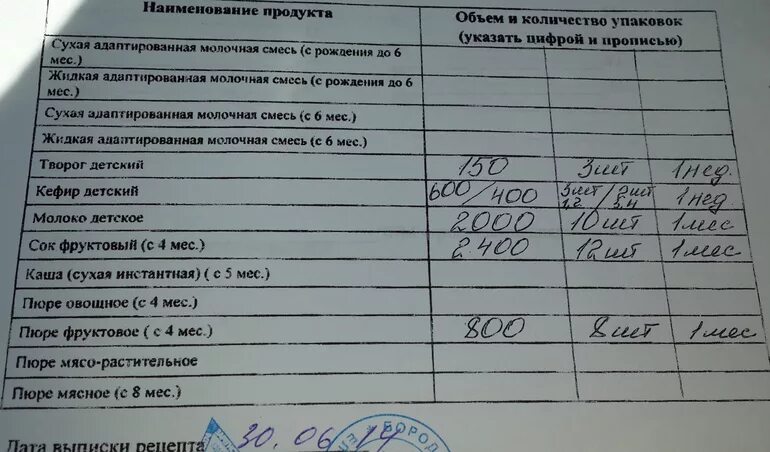 Наименование продукта
Объем и количество упаковок
(указать цифрой и прописью)
Сухая адаптированная молочная смесь (с рождения до 6
мес.)
Жидкая адаптированная молочная смесь (с рождения до 6
мес.)
Сухая адаптированная молочная смесь (с 6 мес.)
Жидкая адаптированная молочная смесь (с 6 мес.)
Творог детский 150 3шт 1нед.
Кефир детский 600/400 3шт/2шт 1нед.
Молоко детское 2000 10шт 1мес
Сок фруктовый (с 4 мес.) 2400 12шт 1мес
Каша (сухая инстантная) ( с 5 мес.)
Пюре овощное (с 4 мес.)
Пюре фруктовое ( с 4 мес.) 800 8шт 1мес
Пюре мясо-растительное
Пюре мясное (с 8 мес.)
Дата выписки рецепта 30.06